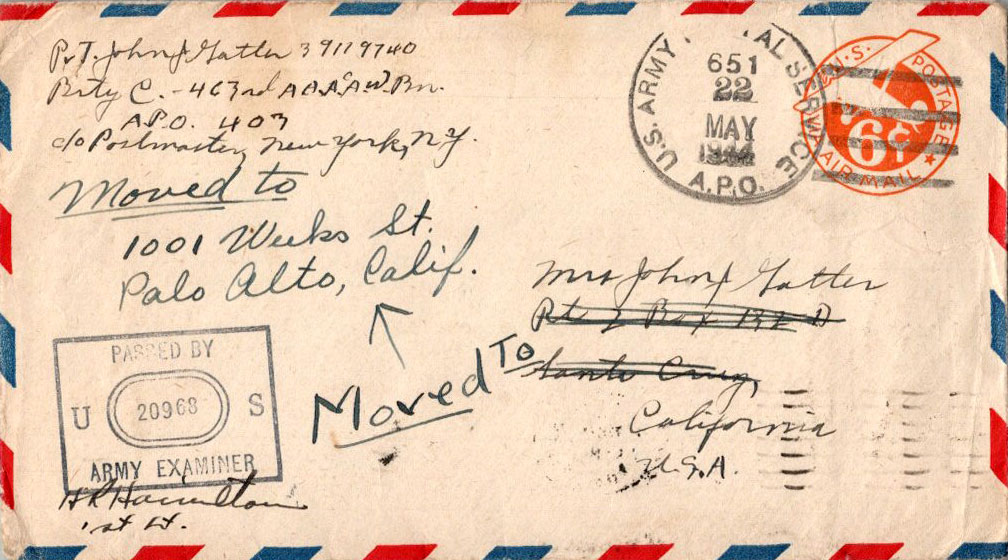 Pvt. John J Gatter 39119740
Btry C. - 463rd A.A.A. A.W. Bn.
A.P.O. 403
c/o Postmaster, New York, N.Y.
Moved to
1001 Weeks St.
Palo Alto, Calif.
U.S. ARMY POSTAL SERVICE
651
22
MAY
1944
A.P.O.
U.S. POSTAGE
6¢
AIR MAIL
Mrs John J Gatter
Rt 2 Box 132 D
Santa Cruz,
California
U.S.A.
Moved To
PASSED BY
U 20968 S
ARMY EXAMINER
H R Hamilton
1st Lt.